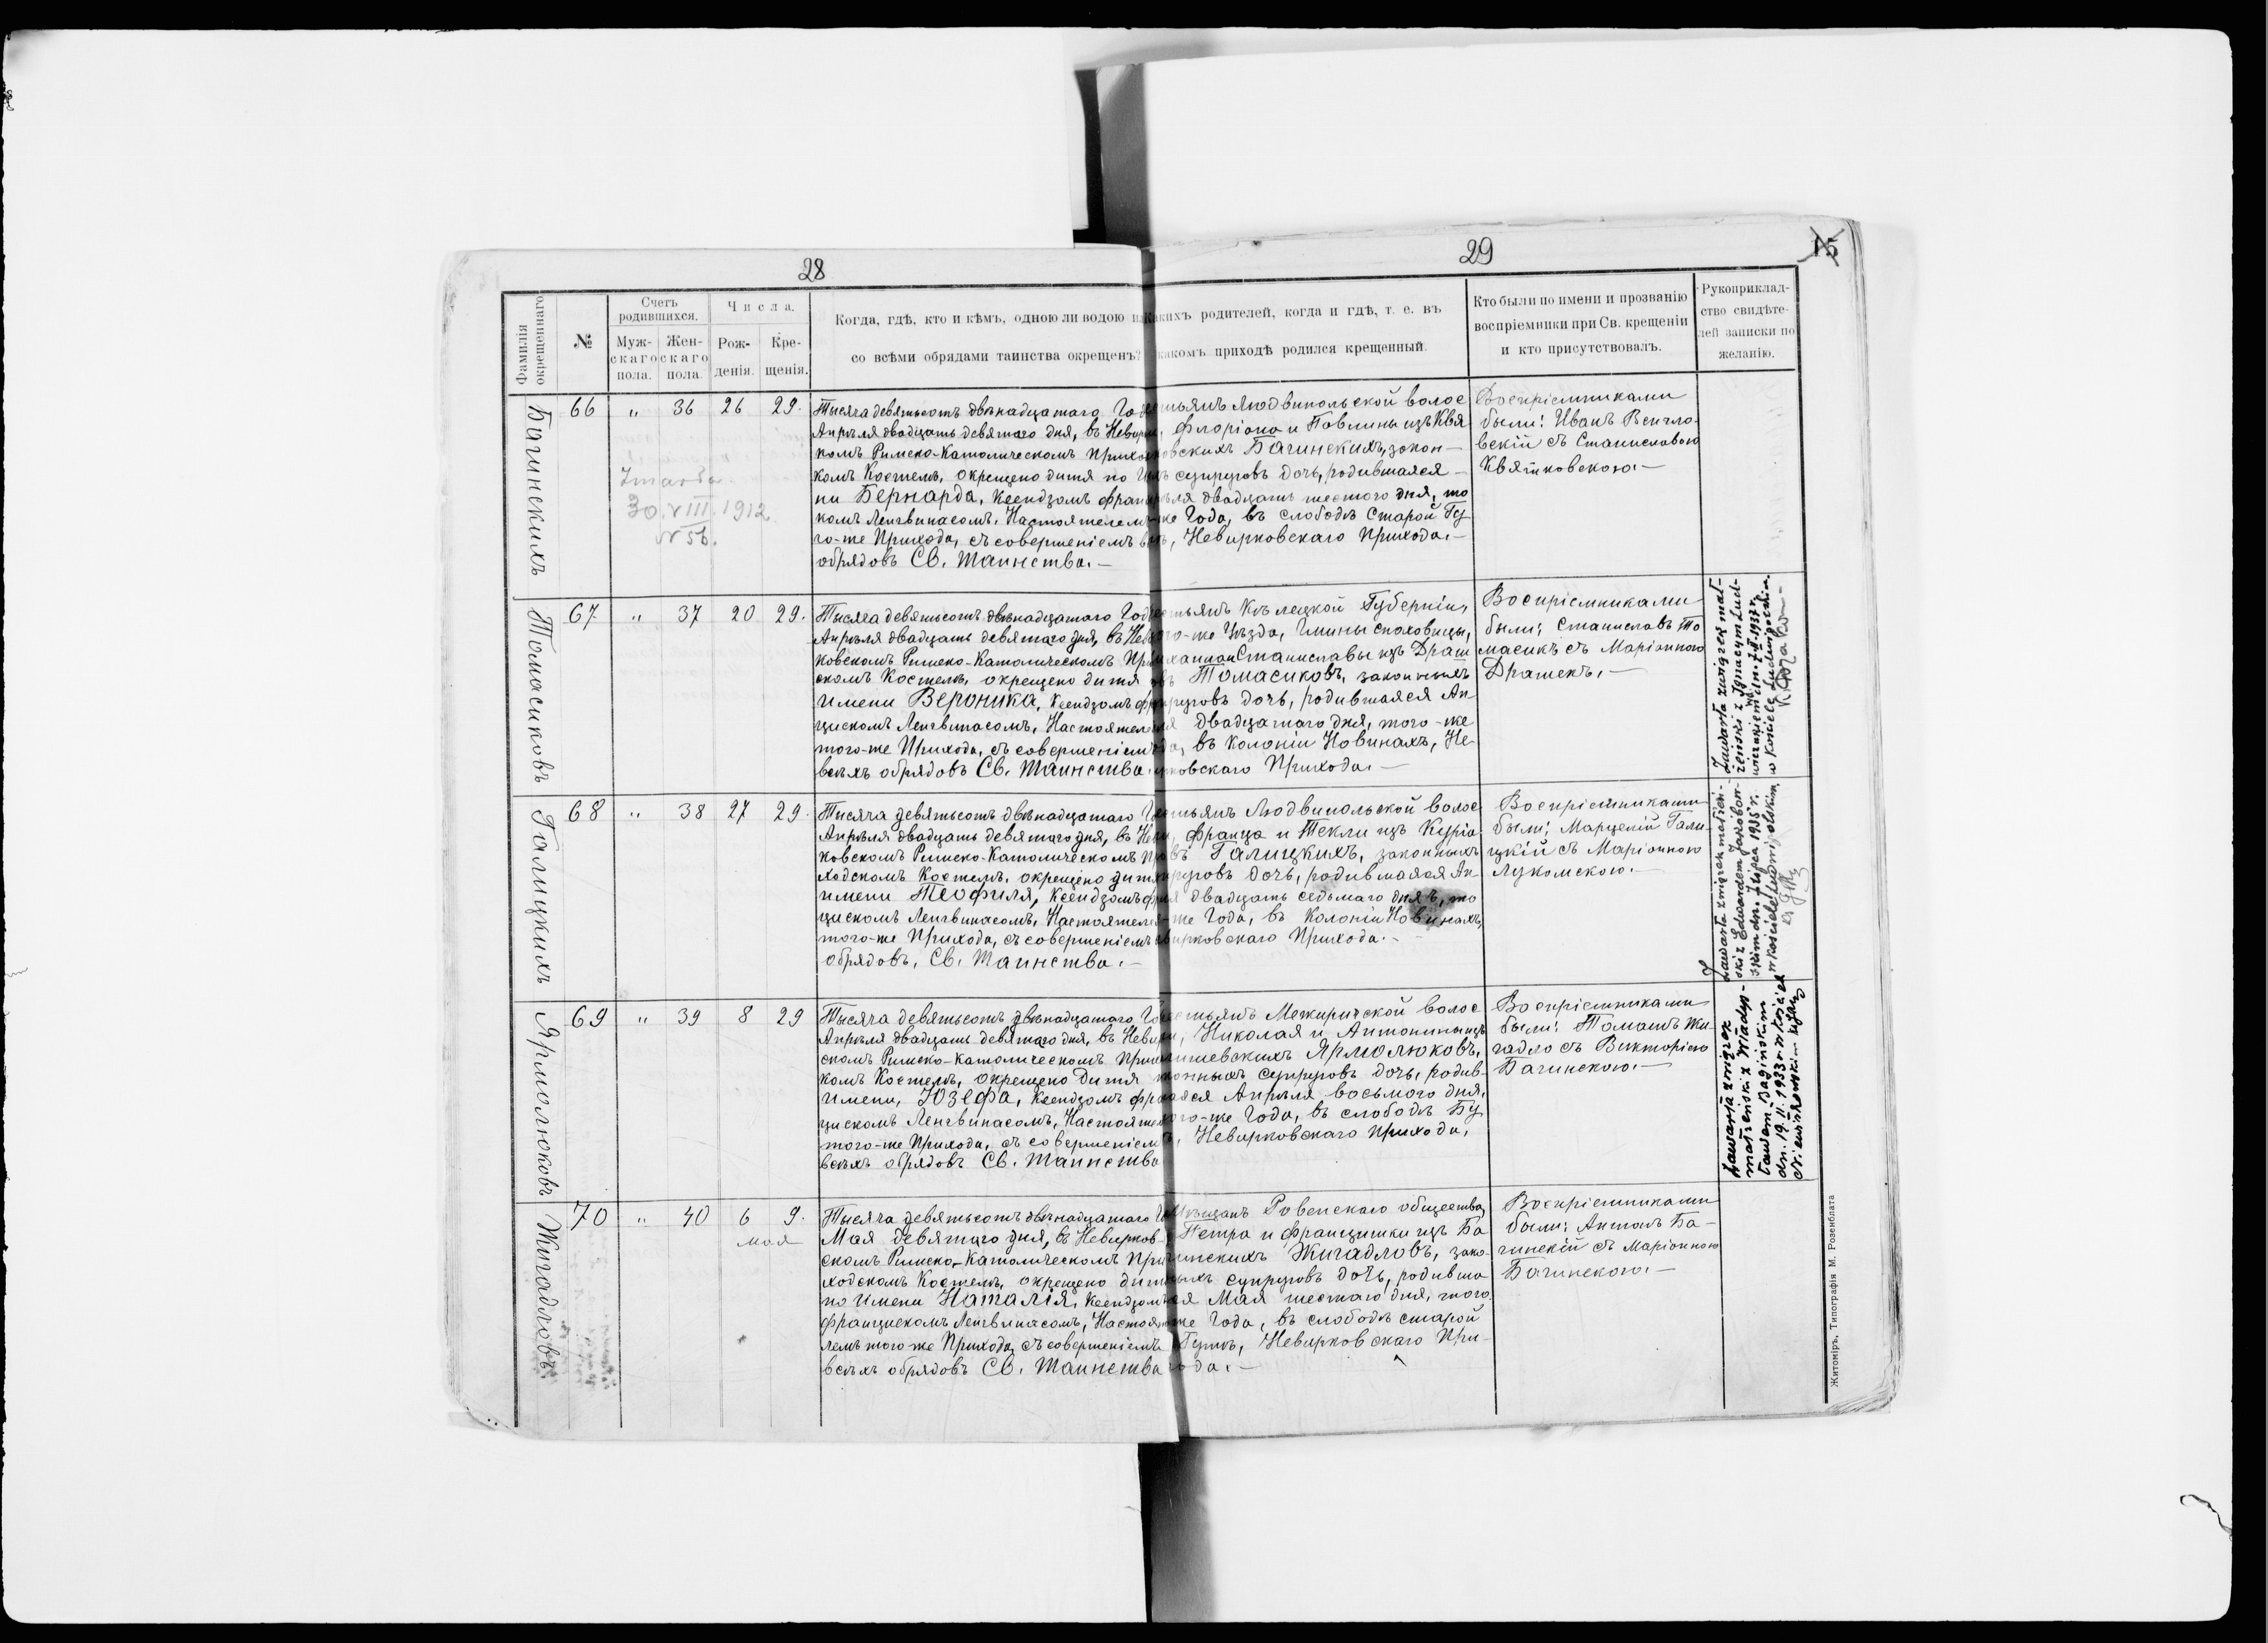 28
29
15
Фамилія окрещеннаго
№
Счетъ родившихся.
Муж-
скаго
пола.
Жен-
скаго
пола.
Числа.
Рож-
денія.
Кре-
щенія.
Когда, гдѣ, кто и кѣмъ, одною ли водою
со всѣми обрядами таинства окрещенъ?
какихъ родителей, когда и гдѣ, т. е. въ
какомъ приходѣ родился крещенный.
Кто были по имени и прозванію
воспріемники при Св. крещеніи
и кто присутствовалъ.
Рукоприклад-
ство свидѣте-
лей записки по
желанію.
Багинскихъ
66 " 36 26 29.
Zmarła
30.VIII.1912
N 56.
Тысяча девятьсотъ двѣнадцатаго Го
Апрѣля двадцать девятаго дня, въ Невир
комъ Римско-Католическомъ Прихо
комъ Костелѣ, окрещено дитя по И
ни Бернарда, Ксендзомъ Фран
комъ Ленгвинасомъ, Настоятелем
го-же Прихода, съ совершеніемъ
обрядовъ Св. Таинства.—
тьянъ Людвипольской волос
Флоріана и Павлины изъ Квя
овскихъ Багинскихъ, закон-
супруговъ дочь, родившаяся
ля двадцать шестого дня, то
же Года, въ слободѣ Старой Гу
, Невирковскаго Прихода.—
Воспріемниками
были: Иванъ Венгло-
вскій съ Станиславою
Квятковскою.—
Томасиковъ
67 " 37 20 29.
Тысяча девятьсотъ двѣнадцатаго Год
Апрѣля двадцать девятаго дня, въ Нев
ковскомъ Римско-Католическомъ При
скомъ Костелѣ, окрещено дитя
имени Вероника, Ксендзомъ Ф
цискомъ Ленгвинасомъ, Настоятел
того-же Прихода, съ совершеніем
всѣхъ обрядовъ Св. Таинства.
тьянъ Кѣлецкой Губерніи,
го-же Уѣзда, Гмины
Станиславы изъ Драш
Томасиковъ, законныхъ
руговъ дочь, родившаяся Ап-
двадцатаго дня, того-же
, въ Колоніи Новинахъ, Не-
рковскаго Прихода.—
Воспріемниками
были: Станиславъ То
масикъ съ Маріанною
Драшекъ.—
Zawarła związek mał-
żeński z Ignacym
1937 r.
w kościele
Галицкихъ
68 " 38 27 29.
Тысяча девятьсотъ двѣнадцатаго Г
Апрѣля двадцать девятаго дня, въ Не
ковскомъ Римско-Католическомъ П
ходскомъ Костелѣ, окрещено дитя
имени Теофиля, Ксендзомъ Ф
цискомъ Ленгвинасомъ, Настоятеле
того-же Прихода, съ совершеніемъ
обрядовъ, Св. Таинства.—
тьянъ Людвипольской волос
Франца и Текли изъ Куріа
въ Галицкихъ, законныхъ
руговъ дочь, родившаяся Ап-
двадцать седьмаго дня, то
же Года, въ Колоніи Новинахъ,
вирковскаго Прихода.—
Воспріемниками
были: Марцелій Гали
цкій съ Маріанною
Лукомскою.—
Zawarła związek małżeń-
ski z Edwardem Jakobow-
skim dn. lipca 1935 r.
w kościele ludwipolskim
Ярмолюковъ
69 " 39 8 29
Тысяча девятьсотъ двѣнадцатаго Го
Апрѣля двадцать девятаго дня, въ Неви
скомъ Римско-Католическомъ При
комъ Костелѣ, окрещено Дитя
имени, Юзефа, Ксендзомъ Фр
цискомъ Ленгвинасомъ, Настояте
того-же Прихода, съ совершеніем
всѣхъ обрядовъ Св. Таинства
тьянъ Межиричской волос
, Николая и Антонины изъ
шевскихъ Ярмолюковъ,
конныхъ супруговъ дочь, родив-
аяся Апрѣля восьмого дня,
того-же Года, въ слободѣ Бу
, Невирковскаго Прихода,
Воспріемниками
были: Томашъ Жи-
гадло съ Викторіею
Багинскою.—
Zawarła związek
małżeński z Włady-
sławem Bagińskim
dn. 19.II.1933 r. w kościele
Niewirkowskim
Жигадловъ
70 " 40 6 9.
мая
Тысяча девятьсотъ двѣнадцатаго Го
Мая девятаго дня, въ Невирков-
скомъ Римско-Католическомъ При
ходскомъ Костелѣ, окрещено дит
по имени Наталія, Ксендзом
Францискомъ Ленгвинасомъ, Настоя
лемъ того же Прихода, съ совершеніемъ
всѣхъ обрядовъ Св. Таинства
Мѣщанъ Ровенскаго общества,
Петра и Францишки изъ Ба
гинскихъ Жигадловъ, зако-
ныхъ супруговъ дочь, родивша
яся Мая шестаго дня, того
же Года, въ слободѣ старой
Гутѣ, Невирковскаго При-
хода.—
Воспріемниками
были: Антонъ Ба-
гинскій съ Маріанною
Багинскою.—
Житоміръ, Типографія М. Розенблата